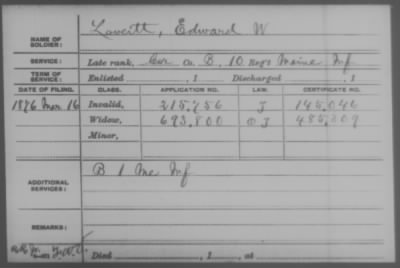 NAME OF SOLDIER: Lovcitt, Edward W
SERVICE: Late rank, Cor Co. B, 10 Reg't Maine Inf
TERM OF SERVICE: Enlisted , 1 Discharged , 1
DATE OF FILING. CLASS. APPLICATION NO. LAW. CERTIFICATE NO.
1876 Mar. 16 Invalid, 215,756 J 145,046
Widow, 693,800 O J 485,209
Minor,
ADDITIONAL SERVICES: B 1 Me Inf
REMARKS:
Died , 1 , at